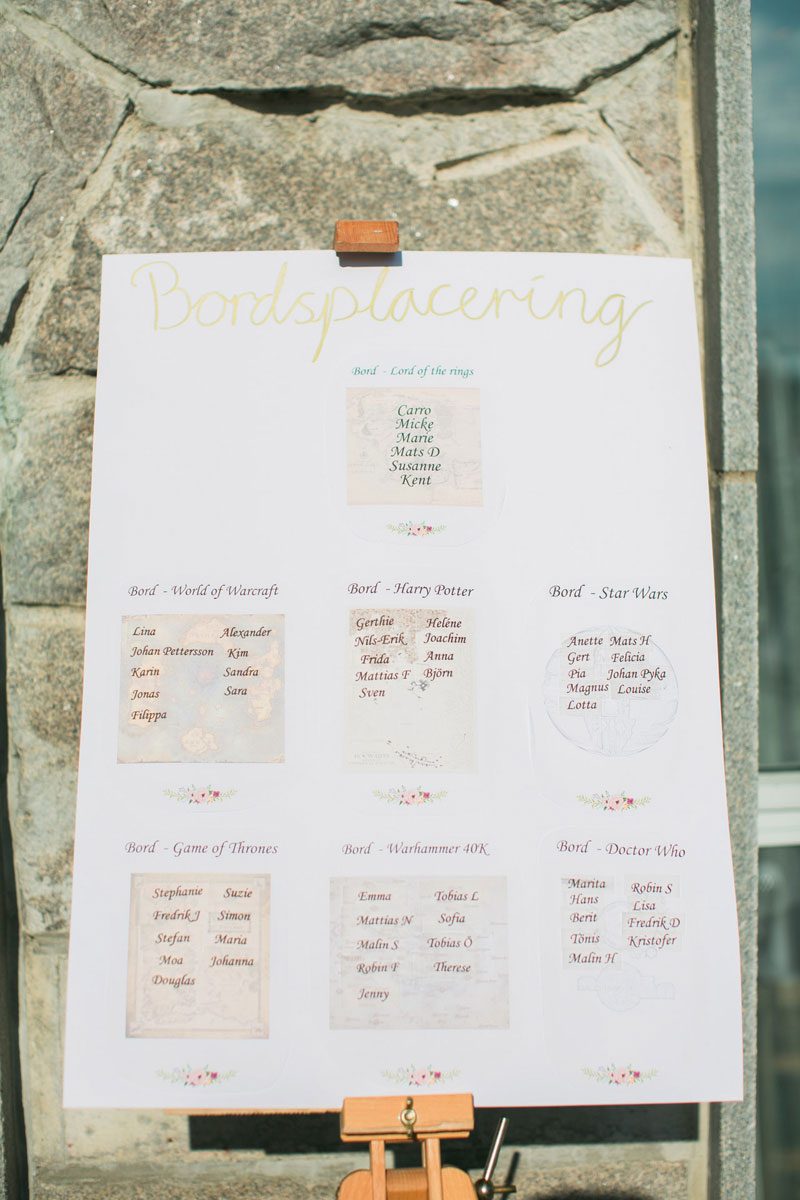 Bordsplacering
Bord - Lord of the rings
Carro
Micke
Marie
Mats D
Susanne
Kent
Bord - World of Warcraft
Lina
Johan Pettersson
Karin
Jonas
Filippa
Alexander
Kim
Sandra
Sara
Bord - Harry Potter
Gerthie
Nils-Erik
Frida
Mattias F
Sven
Heléne
Joachim
Anna
Björn
Bord - Star Wars
Anette
Gert
Pia
Magnus
Lotta
Mats H
Felicia
Johan Pyka
Louise
Bord - Game of Thrones
Stephanie
Fredrik J
Stefan
Moa
Douglas
Suzie
Simon
Maria
Johanna
Bord - Warhammer 40K
Emma
Mattias N
Malin S
Robin F
Jenny
Tobias L
Sofia
Tobias Ö
Therese
Bord - Doctor Who
Marita
Hans
Berit
Tönis
Malin H
Robin S
Lisa
Fredrik D
Kristofer